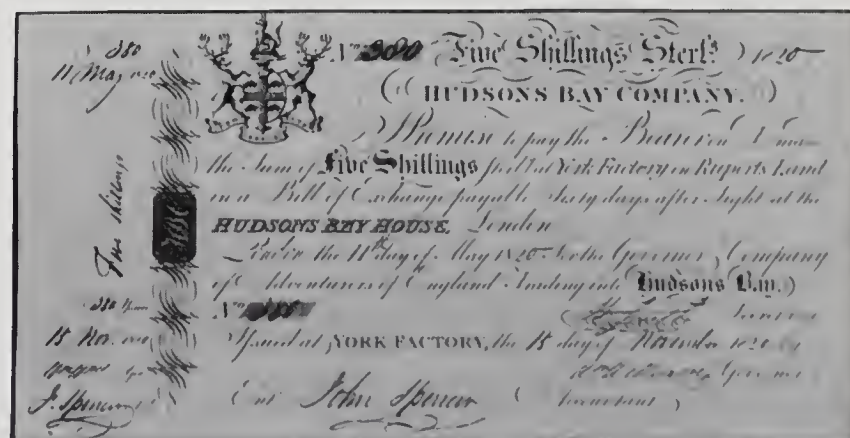 380
11 May
Five Shillings
15 Nov.
J. Spencer
No 380 Five Shillings Sterls 1820
HUDSONS BAY COMPANY.
I Promise to pay the Bearer on Demand
the Sum of Five Shillings Sterls at York Factory in Ruperts Land
in a Bill of Exchange payable Sixty days after Sight at the
HUDSONS BAY HOUSE, London
London the 11th day of May 1820 for the Governor, Company
of Adventurers of England Trading into Hudsons Bay.
No 380 Governor
Issued at YORK FACTORY, the 15 day of November 1820 by
Governor
Ent John Spencer Accountant